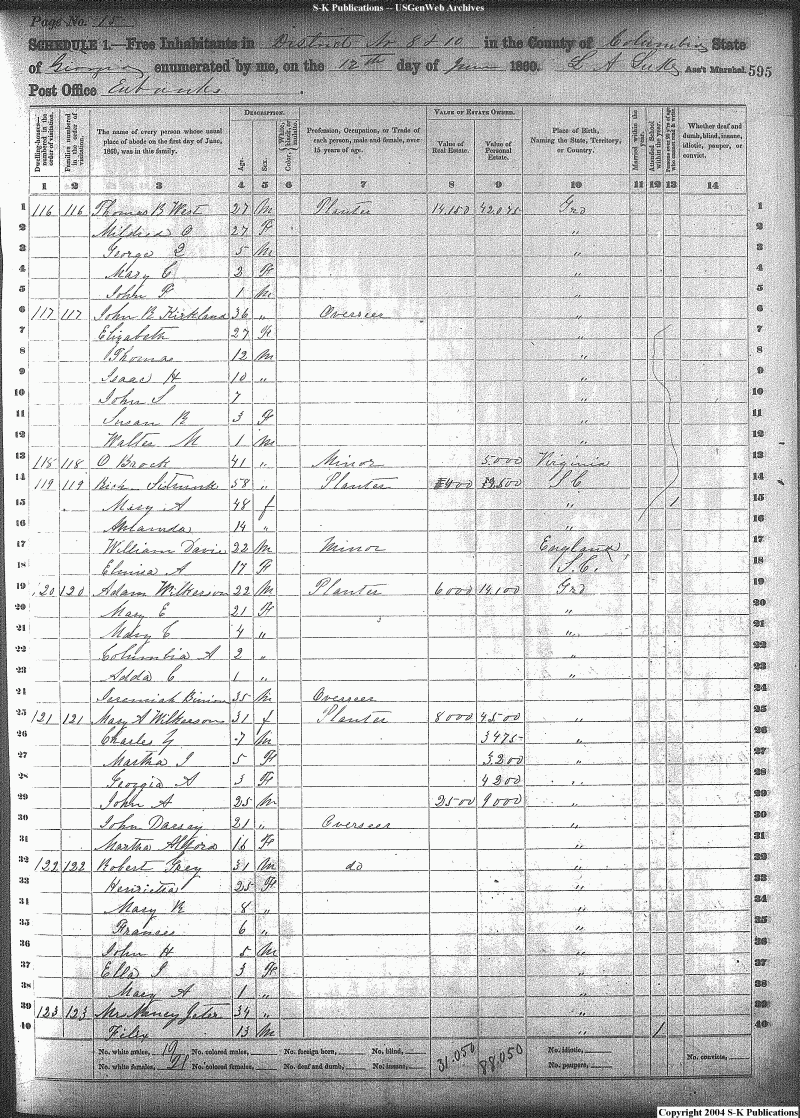 S-K Publications -- USGenWeb Archives
Page No. 15
SCHEDULE 1.—Free Inhabitants in Districts No 8 & 10 in the County of Columbia State
of Georgia enumerated by me, on the 12th day of June 1860. Ass't Marshal. 595
Post Office Eubanks
Dwelling-houses— numbered in the order of visitation.
Families numbered in the order of visitation.
The name of every person whose usual place of abode on the first day of June, 1860, was in this family.
DESCRIPTION.
Age.
Sex.
Color, White, black, or mulatto.
Profession, Occupation, or Trade of each person, male and female, over 15 years of age.
VALUE OF ESTATE OWNED.
Value of Real Estate.
Value of Personal Estate.
Place of Birth, Naming the State, Territory, or Country.
Married within the year.
Attended School within the year.
Persons over 20 y'rs of age who cannot read & write.
Whether deaf and dumb, blind, insane, idiotic, pauper, or convict.
1 2 3 4 5 6 7 8 9 10 11 12 13 14
1 116 116 Thomas B West 27 M Planter 14,150 42,075 Geo 1
2 Mildred O 27 F " 2
3 George 5 M " 3
4 Mary C 2 F " 4
5 John F 1 M " 5
6 117 117 John B Kirkland 36 " Overseer " 6
7 Elizabeth 27 F " 7
8 Thomas 12 M " 8
9 Isaac H 10 " " 9
10 John S 7 " 10
11 Susan R 3 F " 11
12 Walter M 1 M " 12
13 118 118 O Brock 41 " Minor 5000 Virginia 13
14 119 119 58 " Planter S.C 14
15 Mary A 48 f " 1 15
16 Amanda 14 " " 16
17 William Davis 22 M Minor England 17
18 Elmira A 17 F S.C. 18
19 120 120 Adam Wilkerson 22 M Planter 6000 14,100 Geo 19
20 Mary E 21 F " 20
21 Mary C 4 " " 21
22 Columbia A 2 " " 22
23 Adda C 1 " " 23
24 Jeremiah 35 M Overseer 24
25 121 121 Mary A Wilkersons 31 f Planter 8000 4500 " 25
26 Charles Y 7 M 3475 " 26
27 Martha J 5 F 3200 " 27
28 Georgia A 3 F 4200 " 28
29 John A 25 M 2500 9000 " 29
30 John Darsey 21 " Overseer " 30
31 Martha Alford 16 F " 31
32 122 122 Robert Grey 31 M do " 32
33 Henrietta 25 F " 33
34 Mary R 8 " " 34
35 Frances 6 " " 35
36 John H 5 M " 36
37 Ella J 3 F " 37
38 Mary A 1 " " 38
39 123 123 Mrs Nancy 34 " " 39
40 13 M " 1 40
No. white males, 19 No. colored males, No. foreign born, No. blind, 31.050 88.050 No. idiotic, No. convicts,
No. white females, 21 No. colored females, No. deaf and dumb, No. insane, No. paupers,
Copyright 2004 S-K Publications